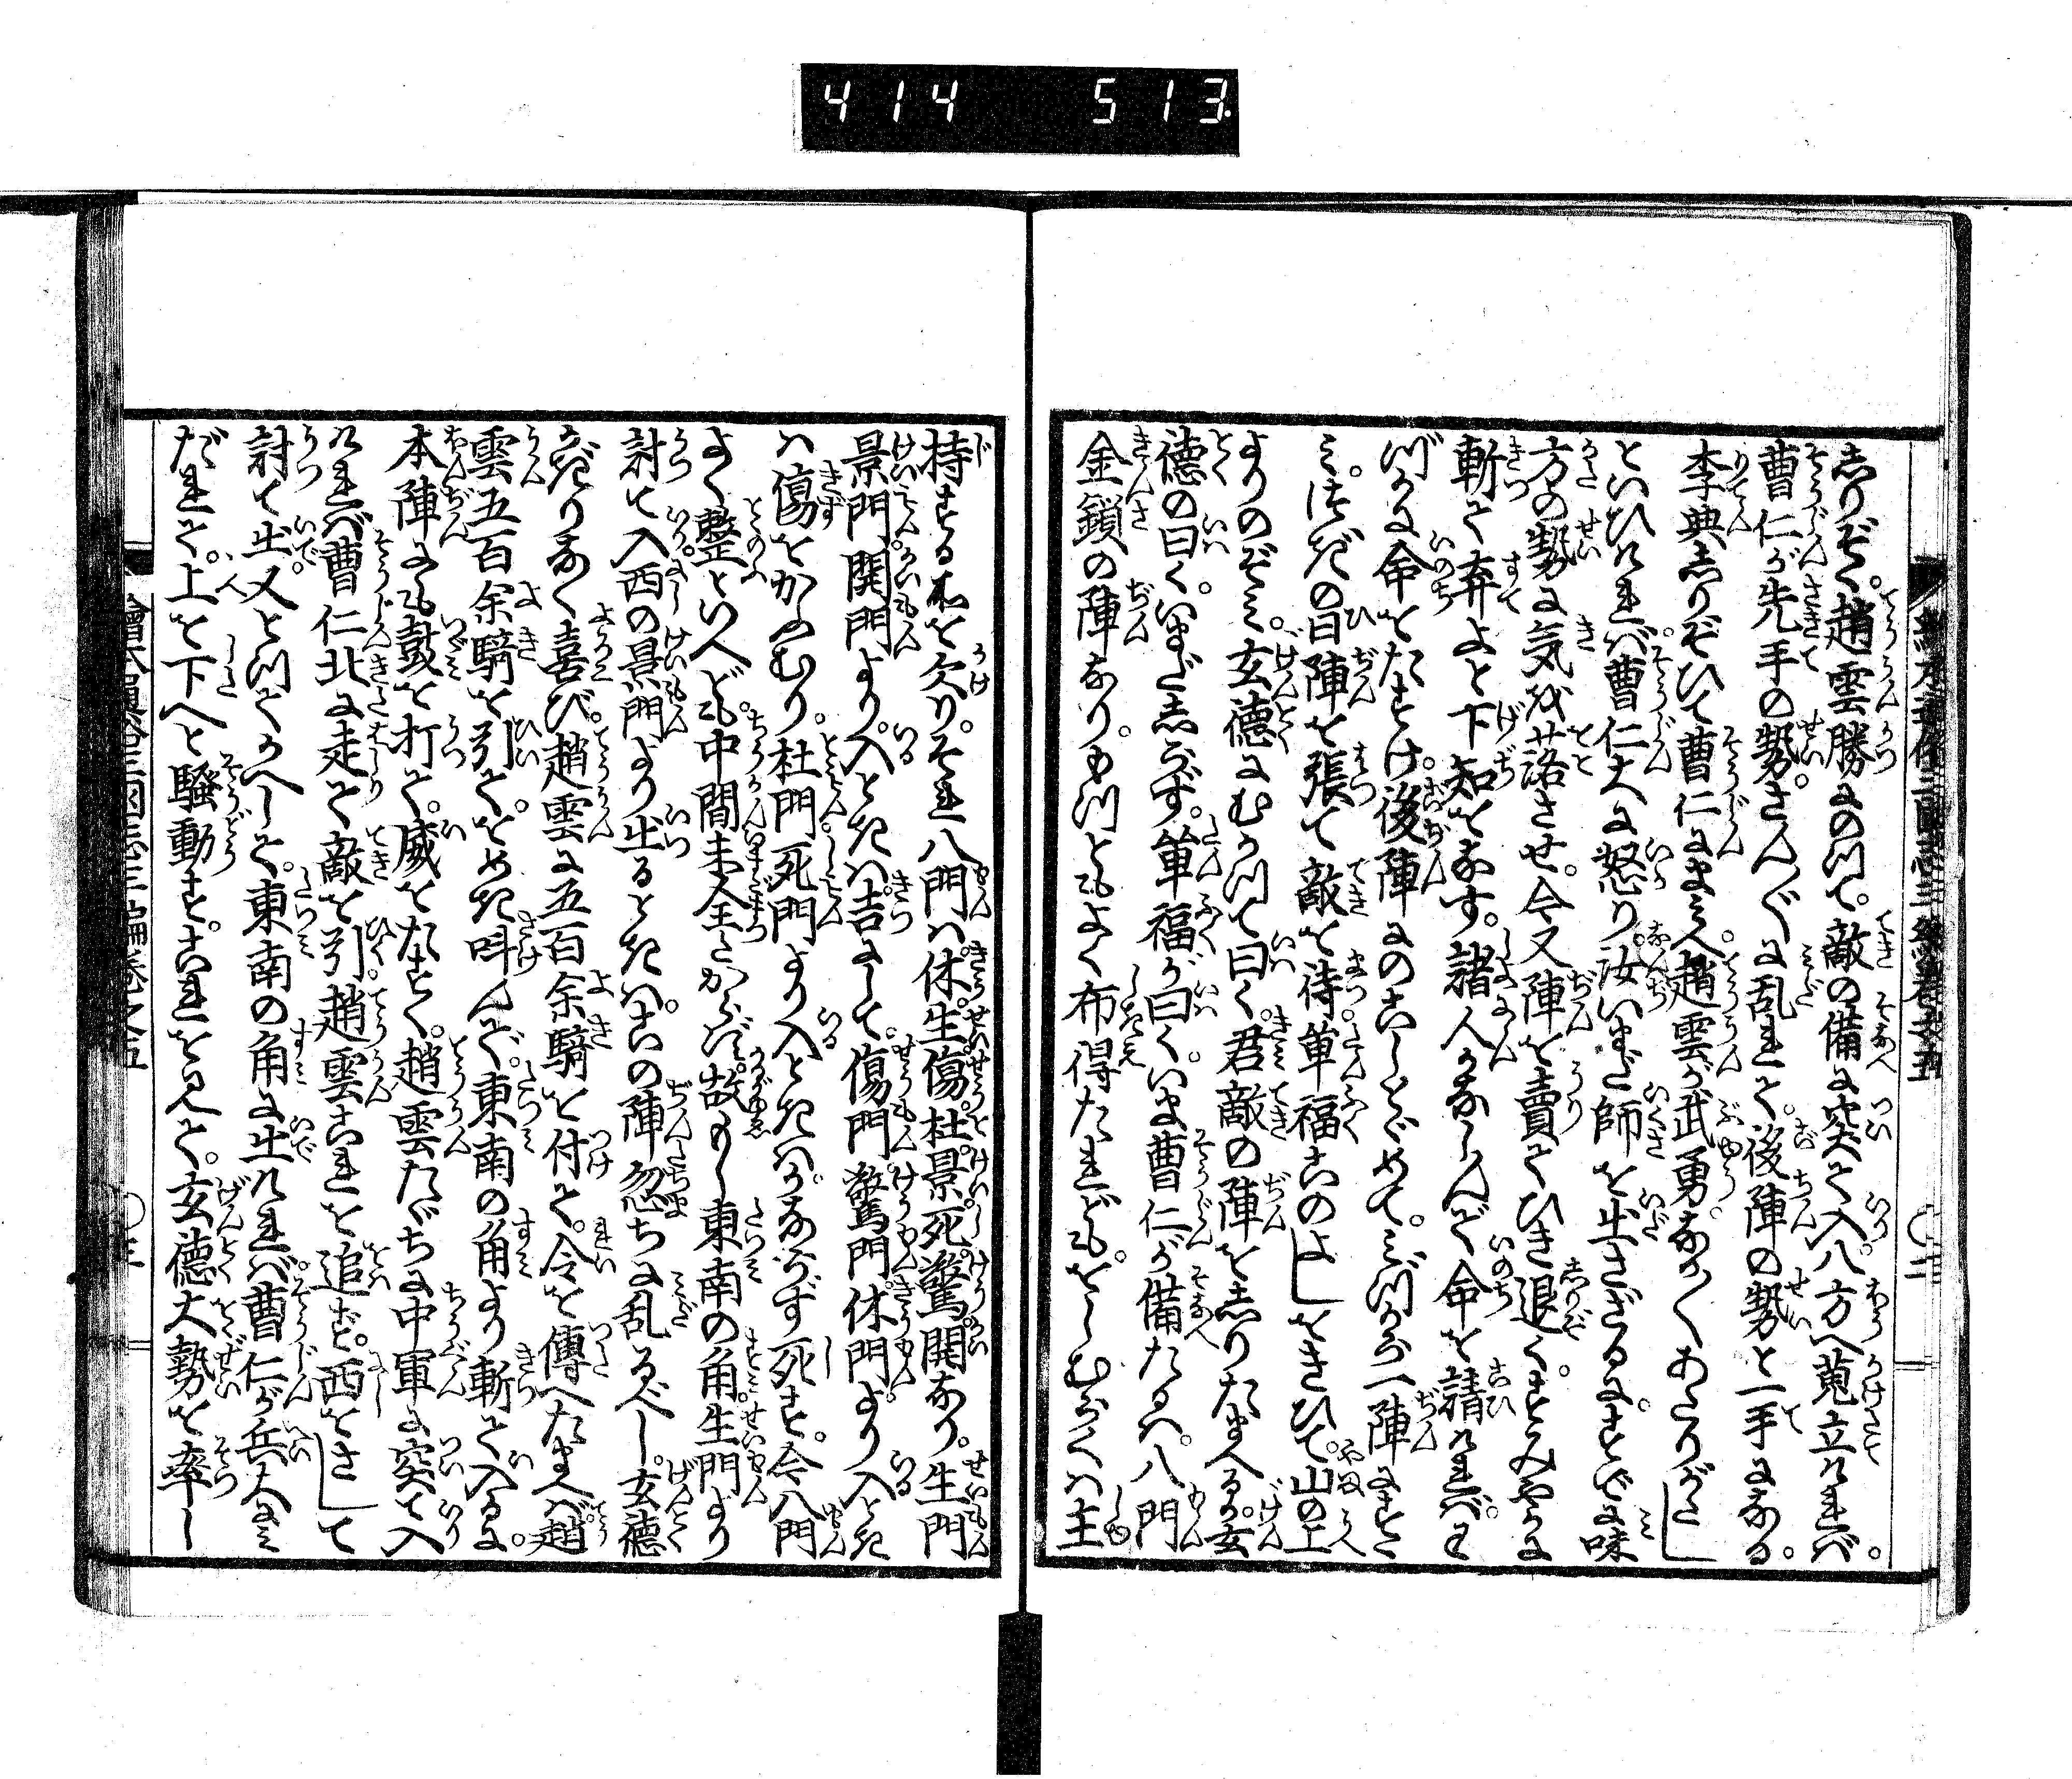 414 513
しりぞく。趙雲勝にのつて。敵の備に突て入。八方へ蒐立ければ。
曹仁が先手の勢。さんぐに乱れて。後陣の勢と一手になる。
李典しりぞひて曹仁にまみへ。趙雲が武勇。なかくあたりがたし
といひければ。曹仁大に怒り。汝いまだ師を出さざるに。すでに味
方の勢に気を落させ。今又陣を賣てひき退く。すみやかに
斬て弃よと下知をなす。諸人かなしんで命を請ければ。わ
づかに命をたすけ。後陣にのこしとゞめて。みづから一陣にすゝ
み。つぎの日陣を張て敵を待。単福このよしをきひて。山の上
よりのぞみ。玄德にむかつて曰く。君敵の陣をしりたまへるか。玄
德の曰く。いまだしらず。単福が曰く。いま曹仁が備たるハ。八門
金鎖の陣なり。もつともよく布得たれども。をしむらくハ主
持する所を欠り。それ八門ハ休。生。傷。杜。景。死。驚。開なり。生門
景門。開門より。入ときハ吉にして。傷門。驚門。休門。より入とき
ハ傷をかふむり。杜門。死門より入ときハ。かならず死す。今八門
よく整といへども。中間未全からず。故もし東南の角。生門より
討て入。西の景門より出るときハ。この陣忽ちに乱るべし。玄德
かぎりなく喜び。趙雲に五百余騎を付て。令を傳へたまへバ。趙
雲五百余騎を引て。をめき叫んで。東南の角より斬て入るに。
本陣にも鼓を打て。威をたすく。趙雲たゞちに中軍に突て入
ければ曹仁北に走て敵を引。趙雲これを追ず。西をさして
討て出。又とつてかへして。東南の角に出ければ。曹仁が兵大にみ
だれて。上を下へと騒動す。これを見て。玄德大勢を率し